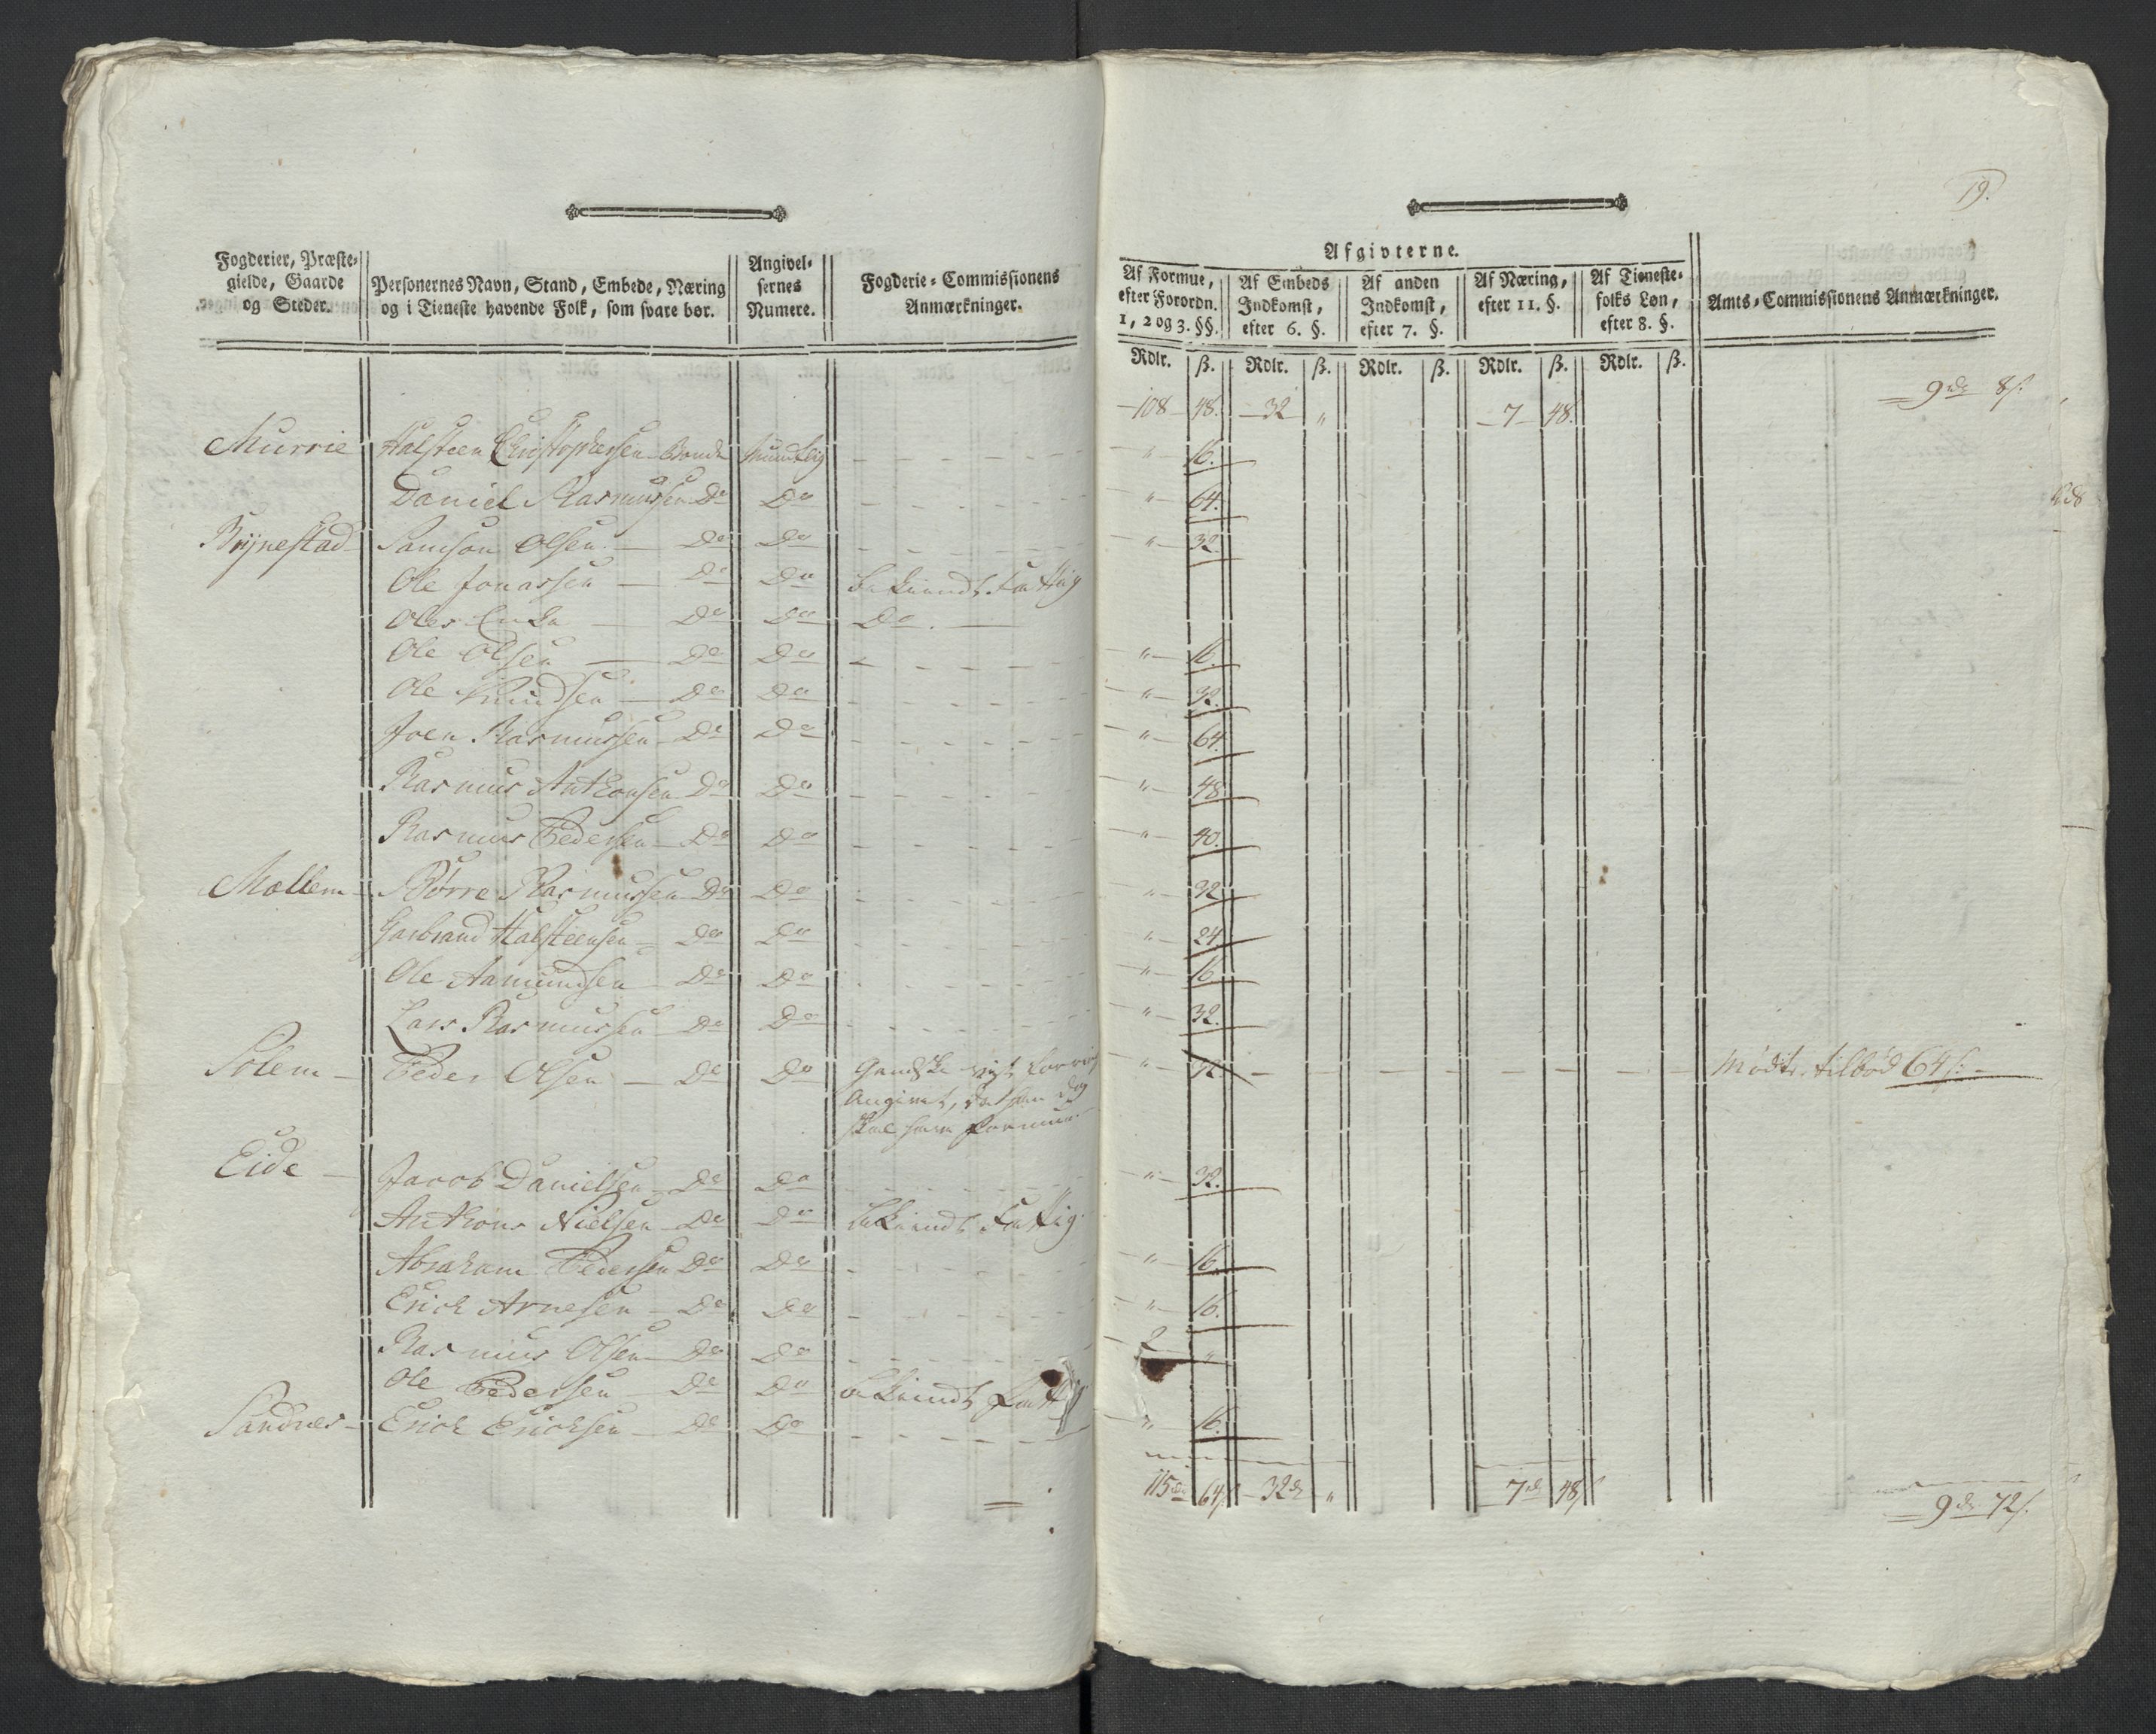 19.
Fogderier, Præste-
gielde, Gaarde
og Steder.
Personernes Navn, Stand, Embede, Næring
og i Tieneste havende Folk, som svare bør.
Angivel-
sernes
Numere.
Fogderie-Commissionens
Anmærkninger.
Afgivterne.
Af Formue,
efter Forordn.
1, 2 og 3. §§.
Af Embeds
Indkomst,
efter 6. §.
Af anden
Indkomst,
efter 7. §.
Af Næring,
efter 11. §.
Af Tieneste-
folks Løn,
efter 8. §.
Amts-Commissionens Anmærkninger.
Rdlr. ß. Rdlr. ß. Rdlr. ß. Rdlr. ß. Rdlr. ß.
108 48. 32 „ 7 48. 9 rd 8 s.
Murrie Halsteen Christophersen Bonde Mundtlig „ 16.
Daniel Rasmussen Do Do „ 64.
Brynestad Samson Olsen Do Do „ 32
Ole Jonassen Do Do bekiendt Fattig
Oles Enke Do Do Do
Ole Olsen Do Do „ 16.
Ole Knudsen Do Do „ 32.
Joen Rasmussen Do Do „ 64.
Rasmus Anthonsen Do Do „ 48
Rasmus Pedersen Do Do „ 40.
Mællem Børre Rasmussen Do Do „ 32
Garbrand Halsteensen Do Do „ 24
Ole Aamundsen Do Do „ 16
Lars Rasmussen Do Do „ 32.
Solem Peder Olsen Do Do Gandske
angivet,
skal have Formue „ 72 Mødte, tilbød 64 s.
Eide Jacob Danielsen Do Do „ 32.
Anthons Nielsen Do Do bekiendt Fattig.
Abraham Pedersen Do Do „ 16.
Erich Arnesen Do Do „ 16.
Rasmus Olsen Do Do 2 „
Ole Pedersen Do Do bekiendt Fattig
Sandnes Erich Erichsen Do Do „ 16.
115 rd 64 s. 32 rd „ 7 rd 48 s 9 rd 72 s.